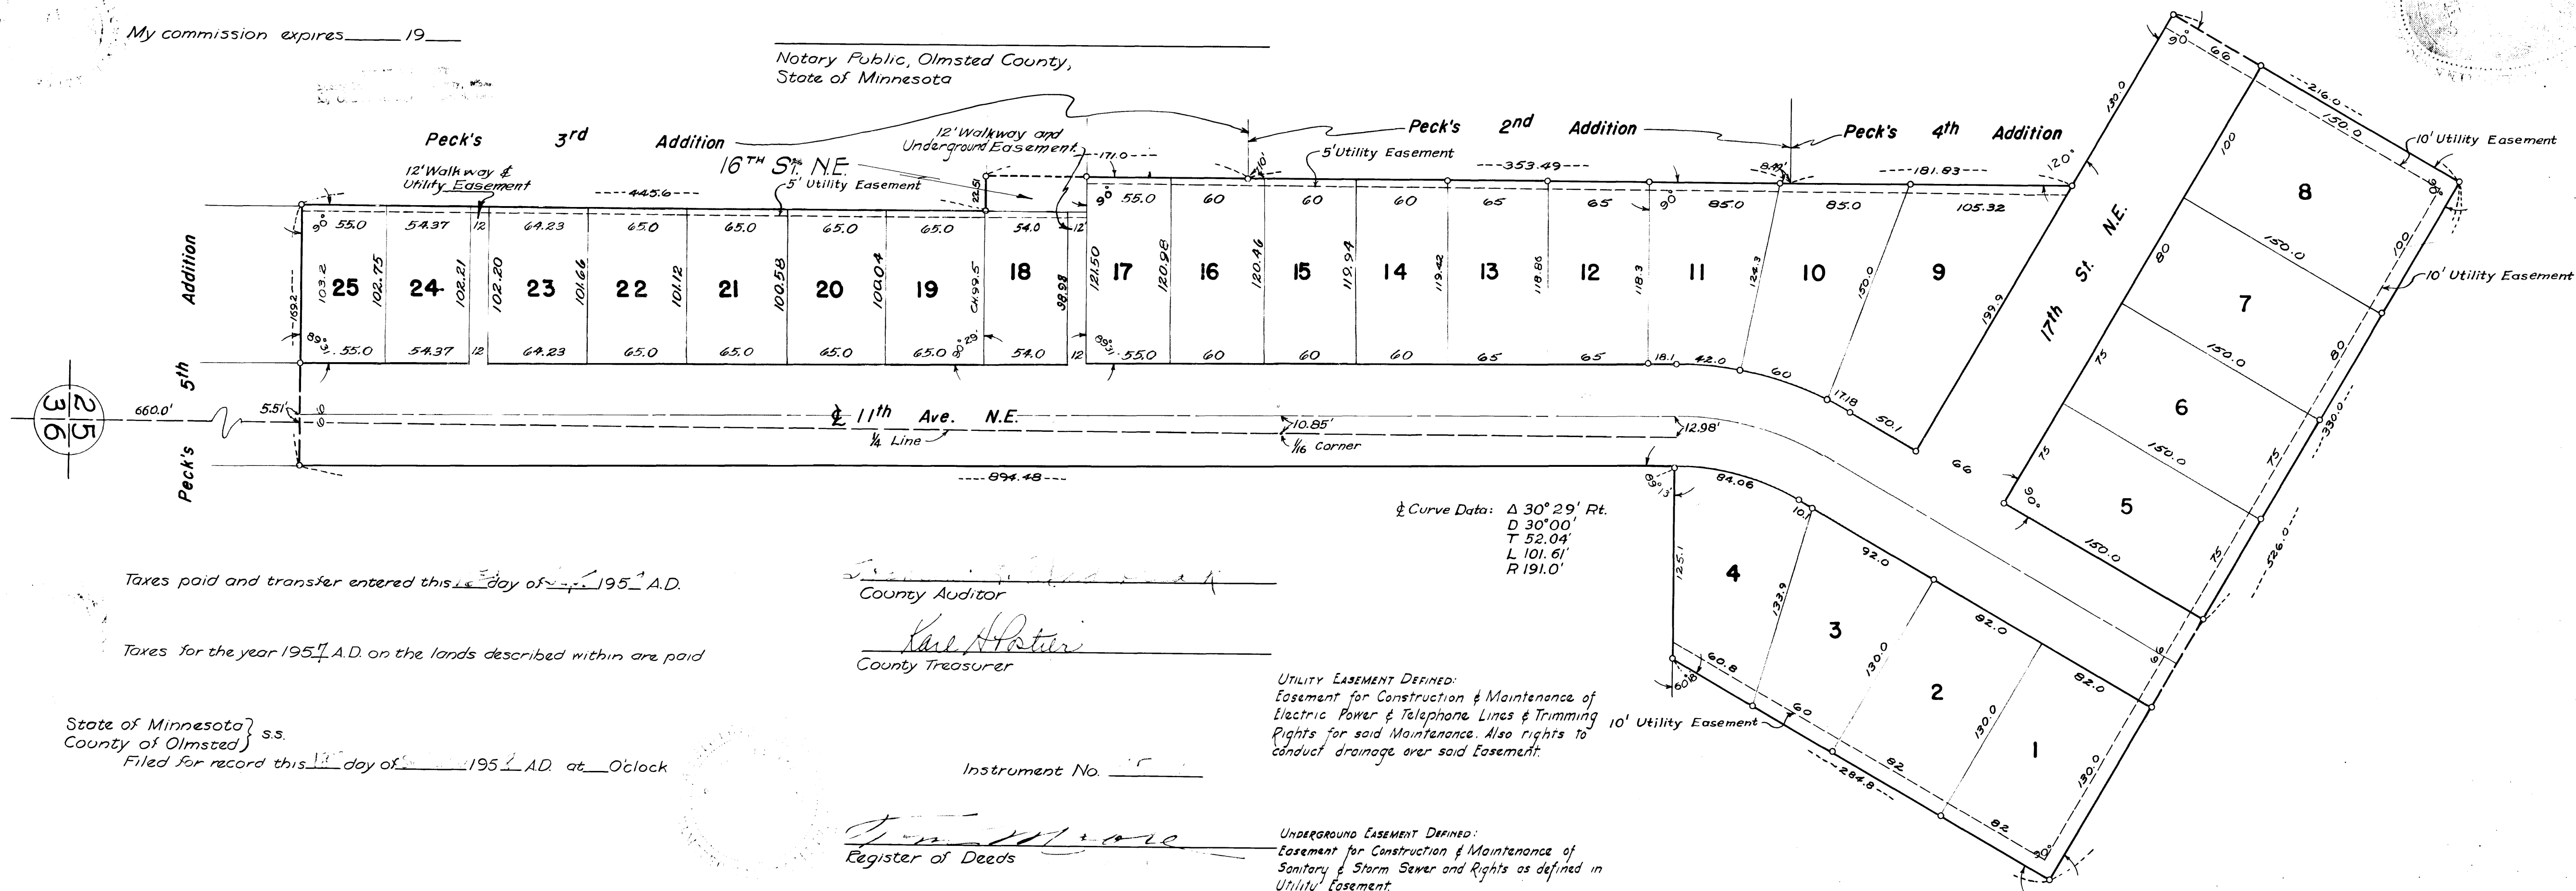 My commission expires 19
Notary Public, Olmsted County,
State of Minnesota
Peck's 3rd Addition
Peck's 2nd Addition
Peck's 4th Addition
16TH ST. N.E.
12' Walkway and
Underground Easement
12' Walkway &
Utility Easement
5' Utility Easement
5' Utility Easement
10' Utility Easement
10' Utility Easement
445.6
171.0
353.49
181.83
22.51
10'
120°
130.0
90° 66
216.0
150.0
90°
90° 55.0 54.37 12 64.23 65.0 65.0 65.0 65.0 54.0 12'
90° 55.0 60 60 60 65 65 90° 85.0 85.0 105.32
169.2
103.2 102.75 102.21 102.20 101.66 101.12 100.58 100.04 CH.99.5 98.98
121.50 120.98 120.46 119.94 119.42 118.86 118.3 124.3 150.0 199.9
25 24 23 22 21 20 19 18 17 16 15 14 13 12 11 10 9
89°31' 55.0 54.37 12 64.23 65.0 65.0 65.0 65.0 90°29' 54.0 12
89°31' 55.0 60 60 60 65 65 18.1 42.0
60
17.18
50.1
17th St. N.E.
66
100
80
75
75
8
150.0
7
150.0
6
150.0
5
90°
150.0
100
80
75
75
330.0
526.0
Peck's 5th Addition
25
36
660.0'
5.51'
℄ 11th Ave. N.E.
¼ Line
10.85'
1/16 Corner
12.98'
894.48
89°13'
84.06
10.1
℄ Curve Data: Δ 30°29' Rt.
D 30°00'
T 52.04'
L 101.61'
R 191.0'
125.1
4
133.9
92.0
3
130.0
82.0
2
130.0
82.0
1
130.0
66
60.8
60
82
82
90°
284.8
10' Utility Easement
Taxes paid and transfer entered this day of 195 A.D.
County Auditor
Taxes for the year 1957 A.D. on the lands described within are paid
Karl H Postier
County Treasurer
State of Minnesota} s.s.
County of Olmsted}
Filed for record this day of 195 A.D. at O'clock
Instrument No.
Register of Deeds
UTILITY EASEMENT DEFINED:
Easement for Construction & Maintenance of
Electric Power & Telephone Lines & Trimming
Rights for said Maintenance. Also rights to
conduct drainage over said Easement.
UNDERGROUND EASEMENT DEFINED:
Easement for Construction & Maintenance of
Sanitary & Storm Sewer and Rights as defined in
Utility Easement.